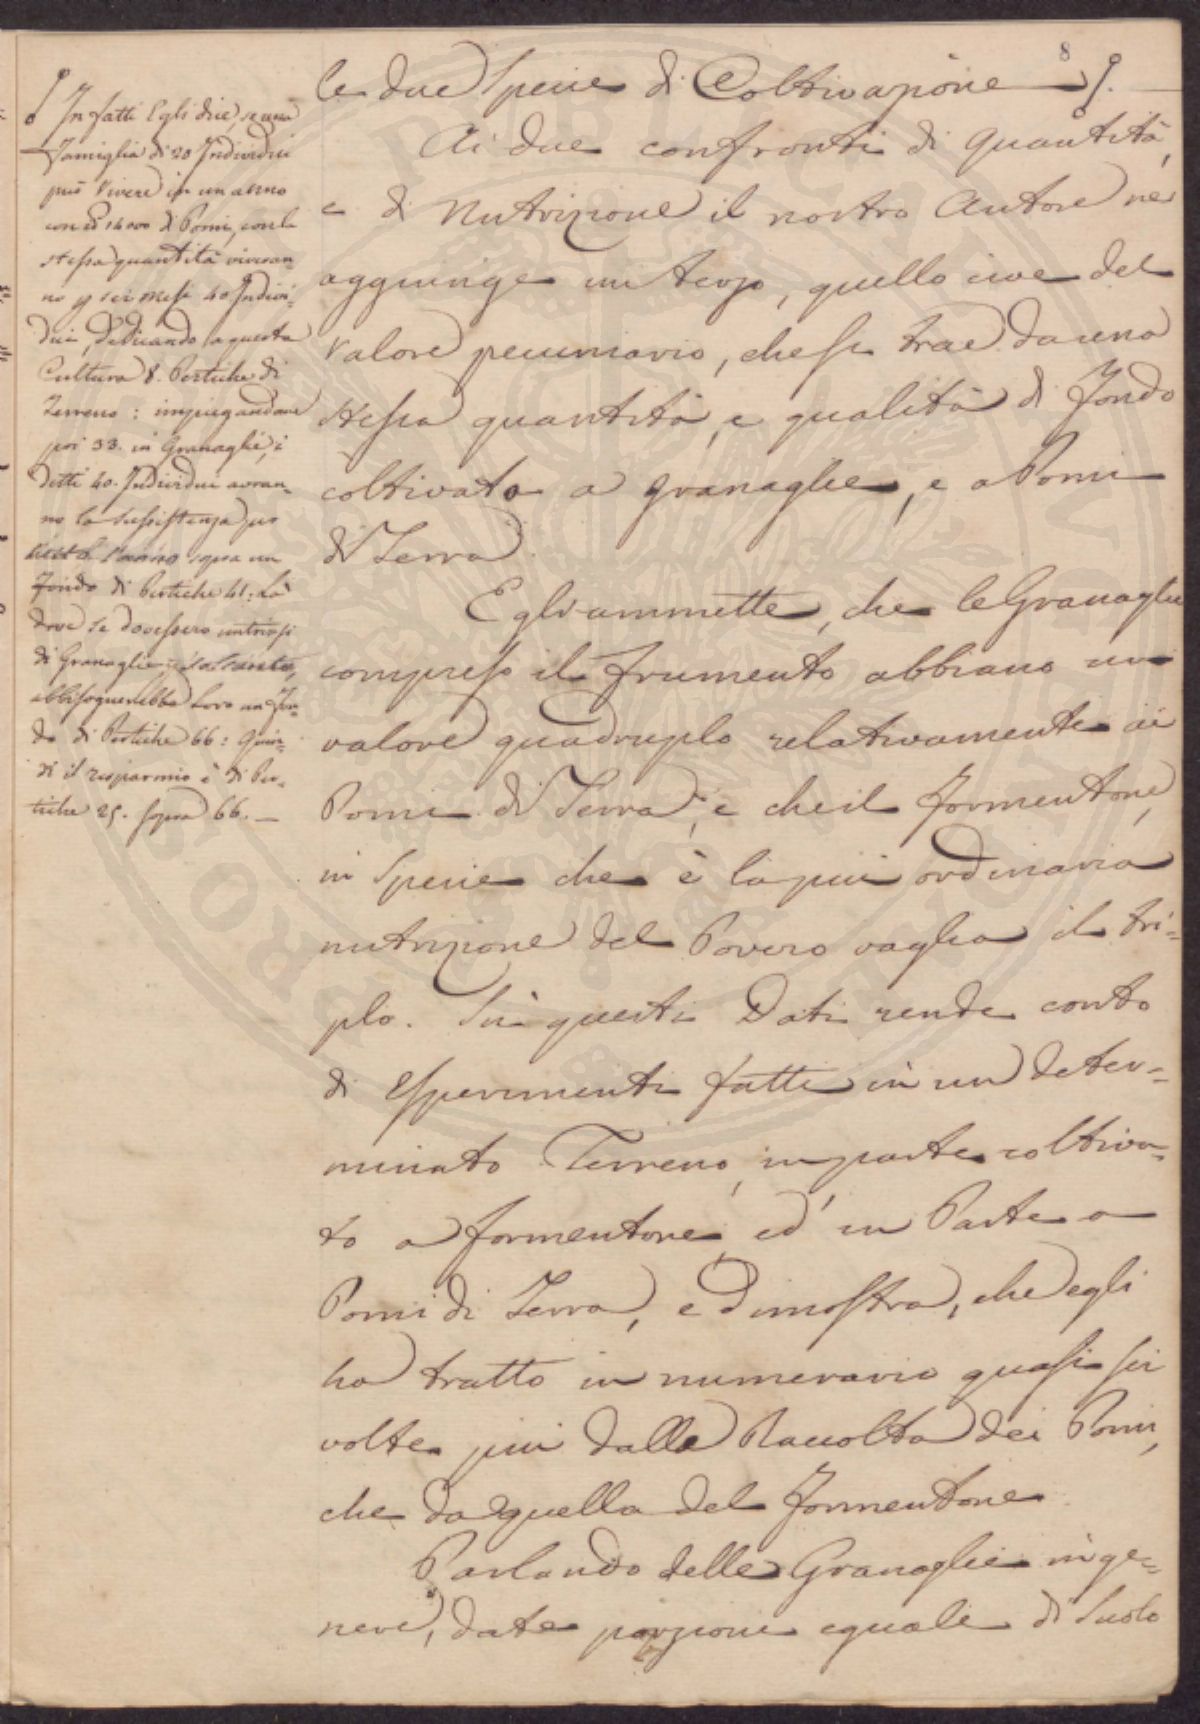 8
le due specie di Coltivazione
Ai due confronti di quantità,
e di nutrizione il nostro Autore ne
aggiunge un terzo, quello cioe del
valore pecuniario, che si trae da una
stessa quantità, e qualità di Fondo
coltivato a granaglie, e a Pomi
di Terra.
Egli ammette, che le Granaglie
compreso il frumento abbiano un
valore quadruplo relativamente ai
Pomi di Terra, e che il formentone,
in specie che è la più ordinaria
nutrizione del Povero vaglia il tri=
plo. Sù questi Dati rende conto
di esperimenti fatti in un deter=
minato Terreno, in parte coltiva=
to a formentone, ed in Parte a
Pomi di Terra, e dimostra, che egli
ha tratto in numerario quasi sei
volte più dalla Raccolta dei Pomi,
che da quella del formentone
Parlando delle Granaglie in ge=
nere, date porzioni eguali di suolo
In fatti Egli dice, se una
famiglia di 20 Individui
può vivere in un anno
con 14000 di Pomi, con la
stessa quantità viveran=
no p sei mesi 40 Indivi=
dui, dedicando a questa
Cultura 8. Pertiche di
Terreno: impiegandone
poi 33. in Granaglie, i
detti 40. Individui avran=
no la sussistenza per
tutto l'anno sopra un
Fondo di Pertiche 41: Là
dove se dovessero nutrirsi
di Granaglie soltanto,
abbisognerebbe loro un Fon=
do di Pertiche 66: Quin=
di il risparmio è di Per=
tiche 25. sopra 66.